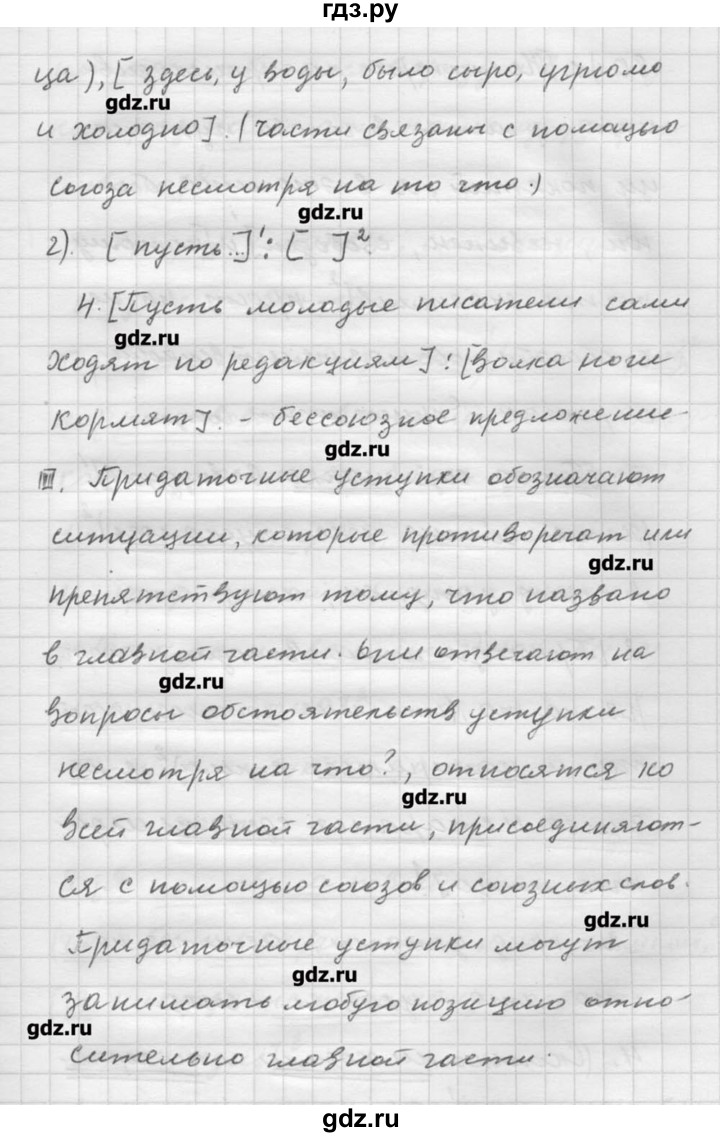 гдз.ру
ца), [здесь, у воды, было сыро, угрюмо
gdz.ru
и холодно]. (части связаны с помощью
союза несмотря на то что.)
gdz.ru
2). [пусть...]¹: [ ]².
4. [Пусть молодые писатели сами
gdz.ru
ходят по редакциям]: [волка ноги
кормят]. - бессоюзное предложение.
gdz.ru
III. Придаточные уступки обозначают
ситуации, которые противоречат или
gdz.ru
препятствуют тому, что названо
в главной части. Они отвечают на
gdz.ru
вопросы обстоятельств уступки
несмотря на что?, относятся ко
gdz.ru
всей главной части, присоединяют-
ся с помощью союзов и союзных слов.
gdz.ru
Придаточные уступки могут
gdz.ru
занимать любую позицию отно-
gdz.ru
сительно главной части.
gdz.ru